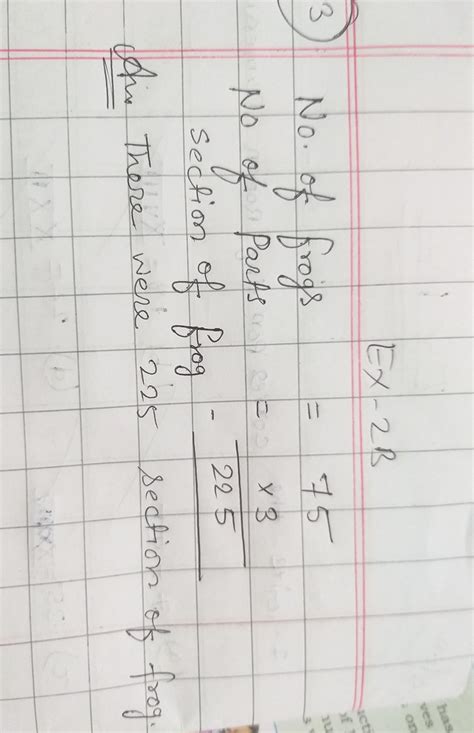 EX-2B
3
No. of frogs = 75
No of Parts = ×3
Section of frog - 225
Ans There were 225 section of frog.
has
ves